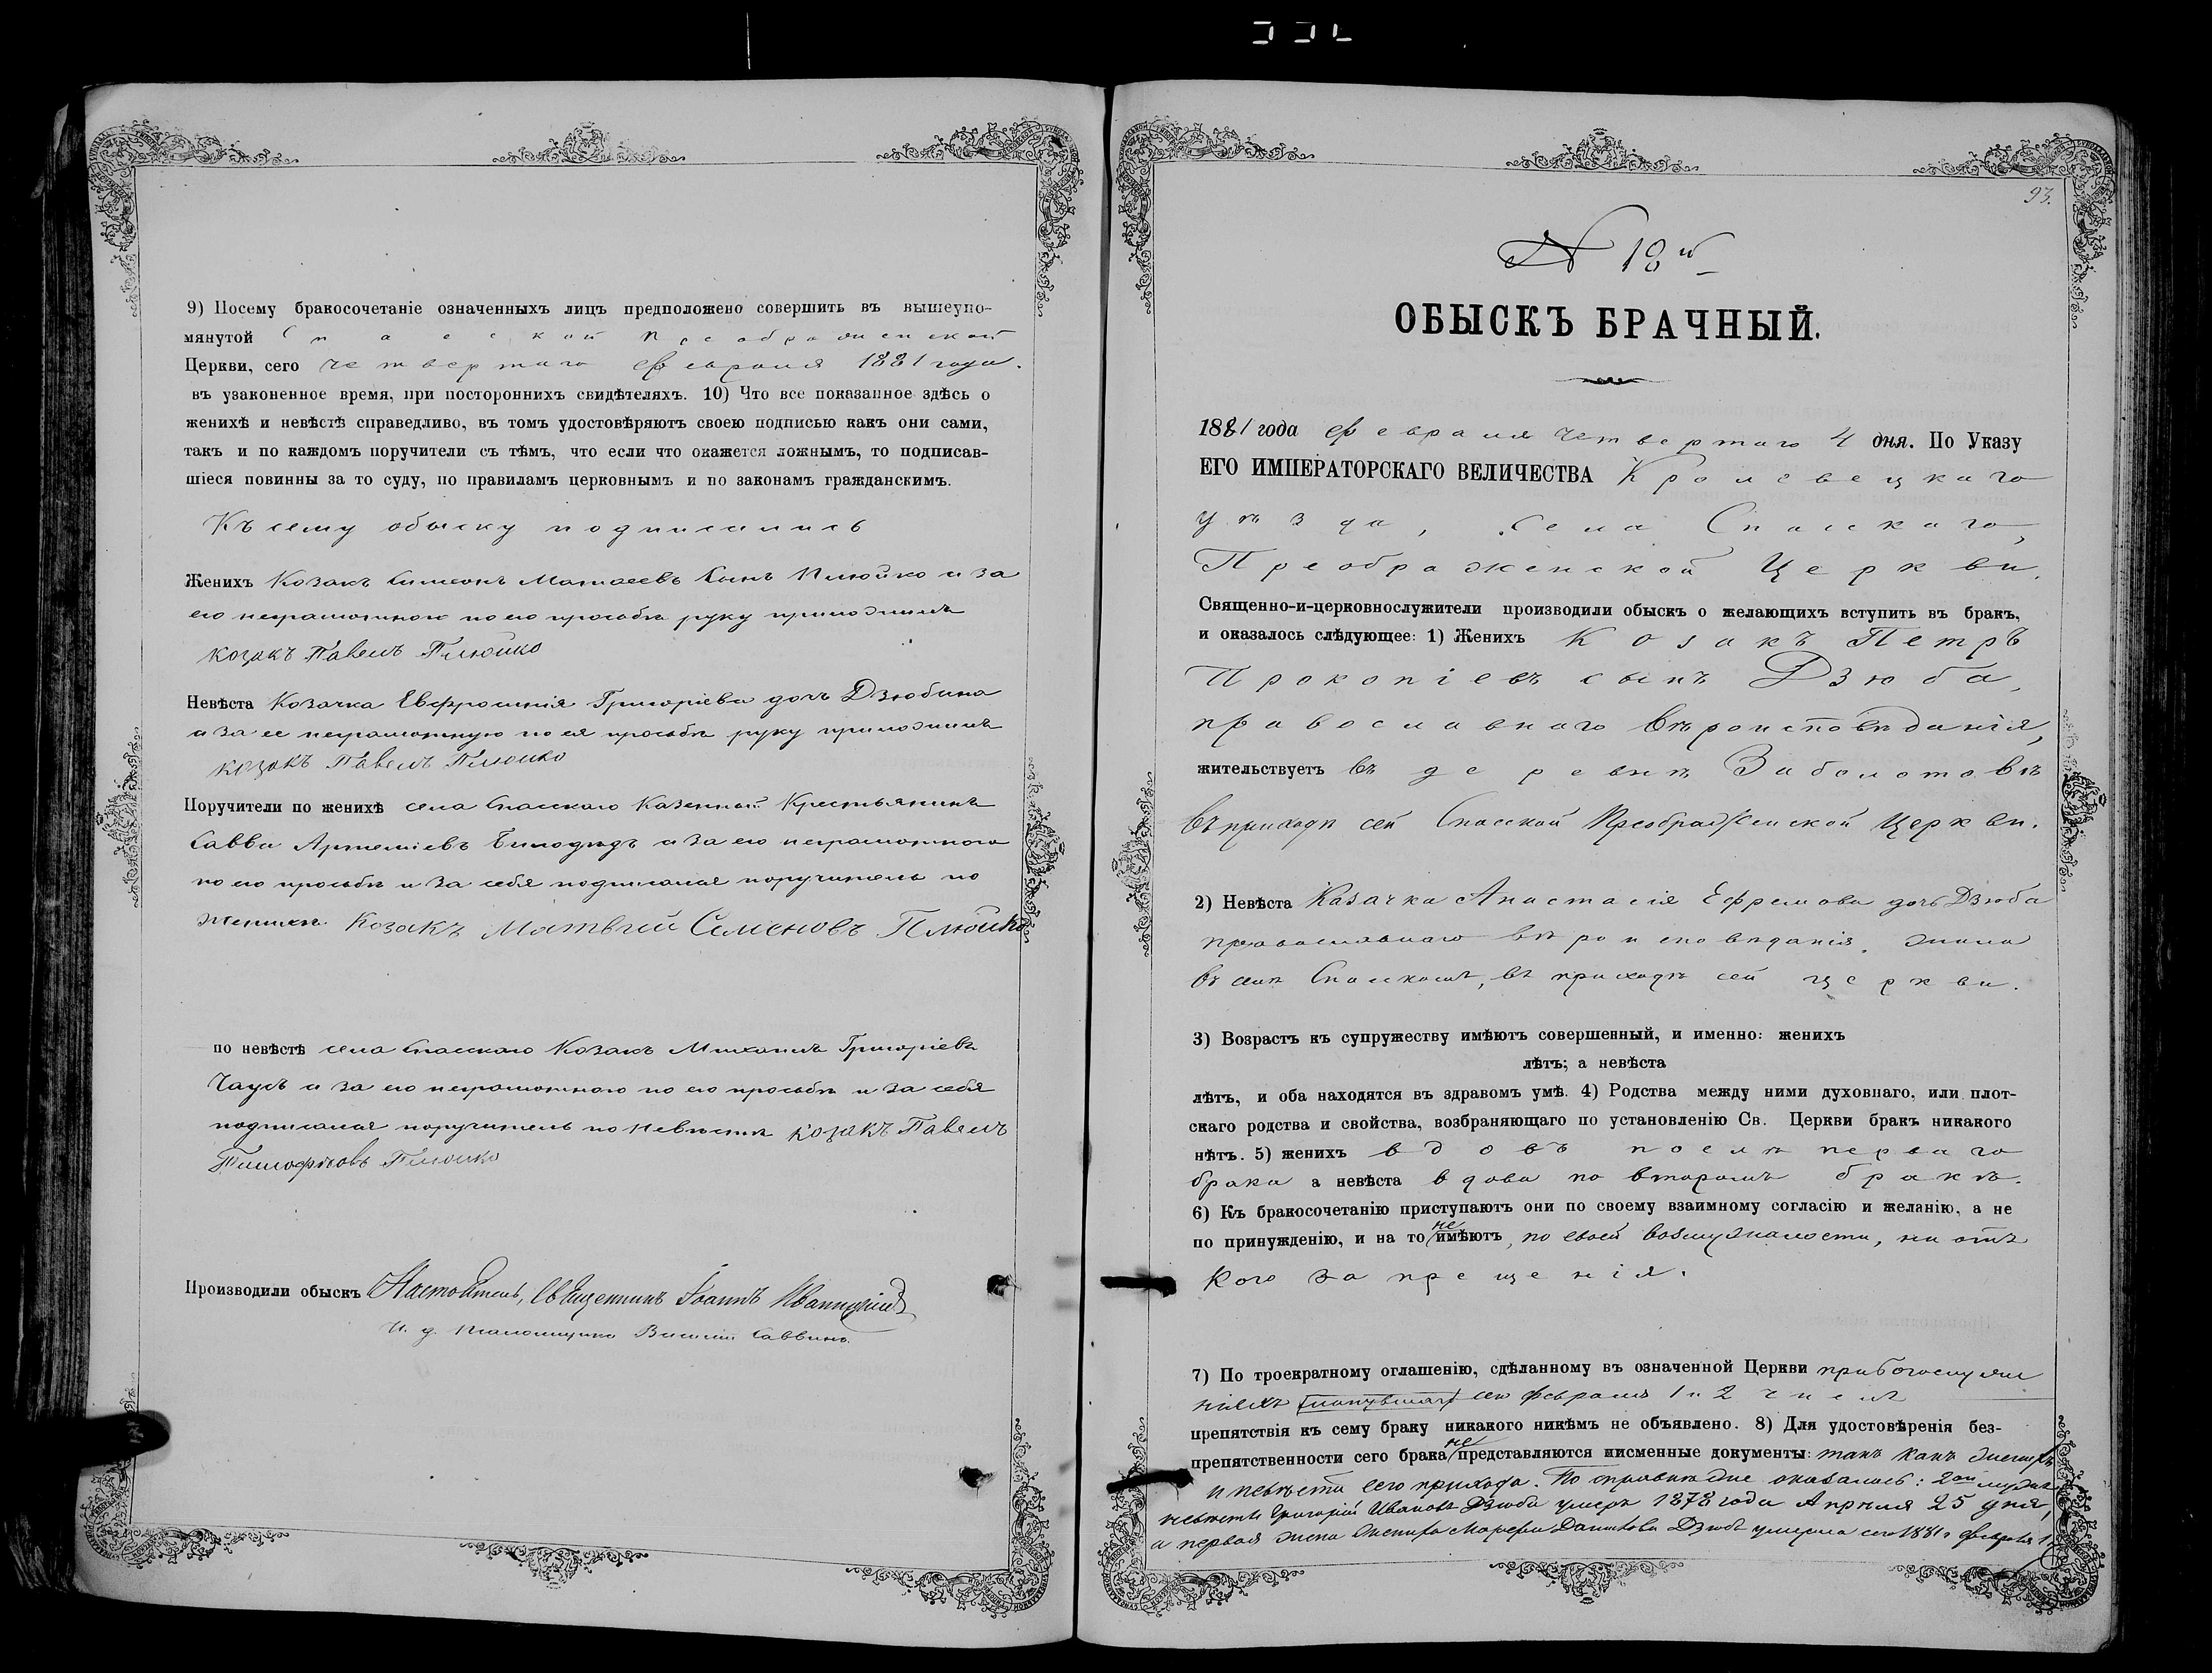 9) Посему бракосочетаніе означенныхъ лицъ предположено совершить въ вышеупо-
мянутой Спасской Преображенской
Церкви, сего четвертаго февраля 1881 года.
въ узаконенное время, при постороннихъ свидѣтеляхъ. 10) Что все показанное здѣсь о
женихѣ и невѣстѣ справедливо, въ томъ удостовѣряютъ своею подписью какъ они сами,
такъ и по каждомъ поручители съ тѣмъ, что если что окажется ложнымъ, то подписав-
шіеся повинны за то суду, по правиламъ церковнымъ и по законамъ гражданскимъ.
Къ сему обыску подписались
Женихъ Козакъ Симеонъ Матѳеевъ сынъ Плюйко и за
его неграмотного по его просьбѣ руку приложилъ
козакъ Павелъ Плюйко
Невѣста Козачка Евфросинія Григоріева дочь Дзюбина
и за ее неграмотную по ея просьбѣ руку приложилъ
козакъ Павелъ Плюйко
Поручители по женихѣ села Спасскаго Казенный Крестьянинъ
Савва Артеміевъ Билодѣдъ и за его неграмотного
по его просьбѣ и за себя подписался поручитель по
женихѣ Козакъ Матвѣй Семеновъ Плюйко
по невѣстѣ села Спасскаго Козакъ Михаилъ Григоріевъ
Чаусъ и за его неграмотного по его просьбѣ и за себя
подписался поручитель по невѣстѣ козакъ Павелъ
Тимофѣовъ Плюйко
Производили обыскъ Настоятель, Священникъ Іоаннъ
И. д. Псаломщика Василій Саввинъ
93.
N 18й
ОБЫСКЪ БРАЧНЫЙ.
1881 года февраля четвертаго 4 дня. По Указу
ЕГО ИМПЕРАТОРСКАГО ВЕЛИЧЕСТВА Кролевецкаго
уѣзда, села Спасскаго,
Преображенской Церкви.
Священно-и-церковнослужители производили обыскъ о желающихъ вступить въ бракъ,
и оказалось слѣдующее: 1) Женихъ Козакъ Петръ
Прокопіевъ сынъ Дзюба,
православнаго вѣроисповѣданія,
жительствуетъ въ деревнѣ Заболотовѣ
въ приходѣ сей Спасской Преображенской Церкви.
2) Невѣста Казачка Анастасія Ефремова дочь Дзюба
православнаго вѣроисповѣданія, жила
въ селѣ Спасскомъ, въ приходѣ сей церкви.
3) Возрастъ къ супружеству имѣютъ совершенный, и именно: женихъ
лѣтъ; а невѣста
лѣтъ, и оба находятся въ здравомъ умѣ. 4) Родства между ними духовнаго, или плот-
скаго родства и свойства, возбраняющаго по установленію Св. Церкви бракъ никакого
нѣтъ. 5) женихъ вдовъ послѣ перваго
брака а невѣста вдова по второмъ бракѣ.
6) Къ бракосочетанію приступаютъ они по своему взаимному согласію и желанію, а не
по принужденію, и на то не имѣютъ, по своей возмужалости, ни отъ
кого запрещенія.
7) По троекратному оглашенію, сдѣланному въ означенной Церкви при богослуже
ніяхъ сего февраля 1 и 2 числъ
препятствія къ сему браку никакого никѣмъ не объявлено. 8) Для удостовѣренія без-
препятственности сего брака не представляются письменные документы: такъ какъ женихъ
и невѣста сего прихода. По справкѣ же оказалось: 2ой мужъ
невѣсты Григорій Ивановъ Дзюба умеръ 1878 года Апрѣля 25 дня,
а первая жена жениха Марѳа Дзюба умерла сего 1881 г февраля 1